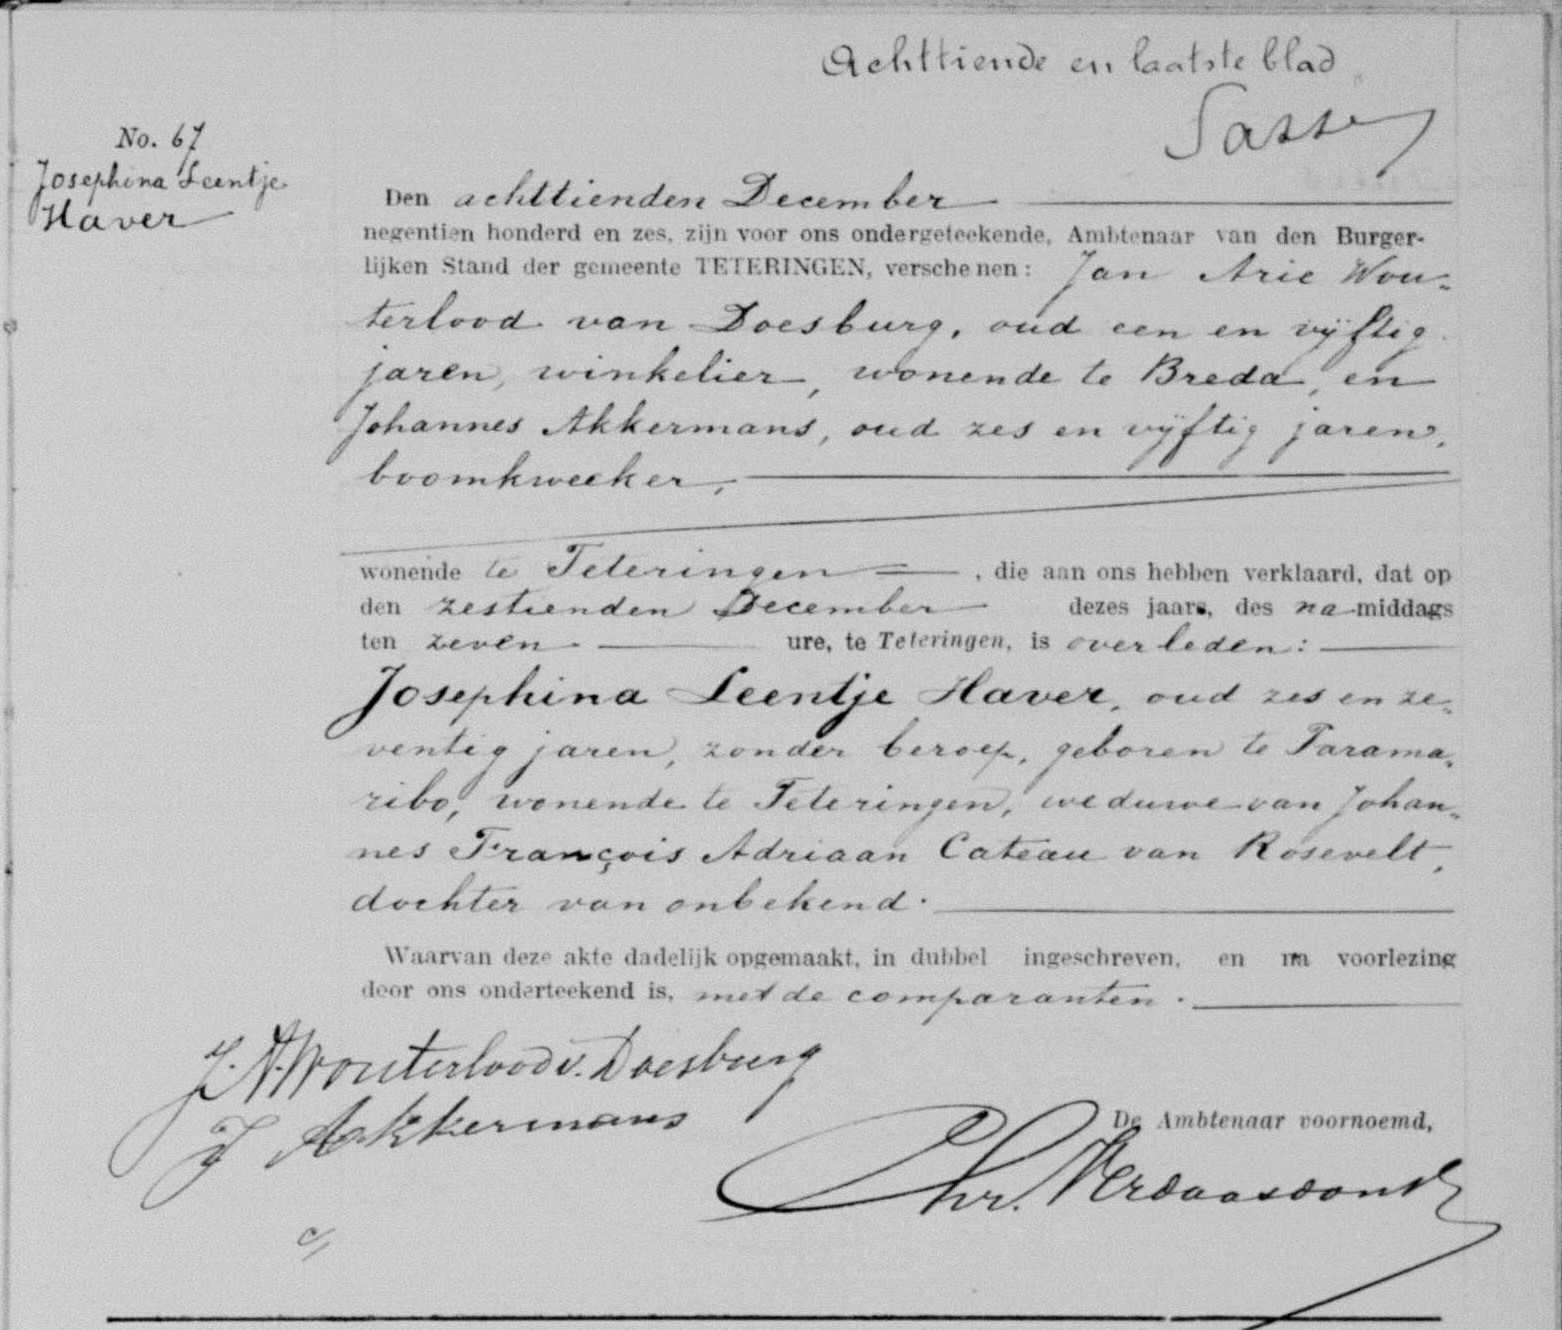 Achttiende en laatste blad
Sassen
No. 67
Josephina Leentje
Haver
Den achttienden December
negentien honderd en zes, zijn voor ons ondergeteekende, Ambtenaar van den Burger-
lijken Stand der gemeente TETERINGEN, verschenen: Jan Arie Wou-
terlood van Doesburg, oud een en vijftig
jaren, winkelier, wonende te Breda, en
Johannes Akkermans, oud zes en vijftig jaren,
boomkweeker,
wonende te Teteringen, die aan ons hebben verklaard, dat op
den zestienden December dezes jaars, des na-middags
ten zeven ure, te Teteringen, is overleden:
Josephina Leentje Haver, oud zes en ze-
ventig jaren, zonder beroep, geboren te Parama-
ribo, wonende te Teteringen, weduwe van Johan-
nes François Adriaan Cateau van Rosevelt,
dochter van onbekend.
Waarvan deze akte dadelijk opgemaakt, in dubbel ingeschreven, en na voorlezing
door ons onderteekend is, met de comparanten.
J. A. Wouterlood v. Doesburg
J Akkermans
De Ambtenaar voornoemd,
Chr. Verdaasdonk